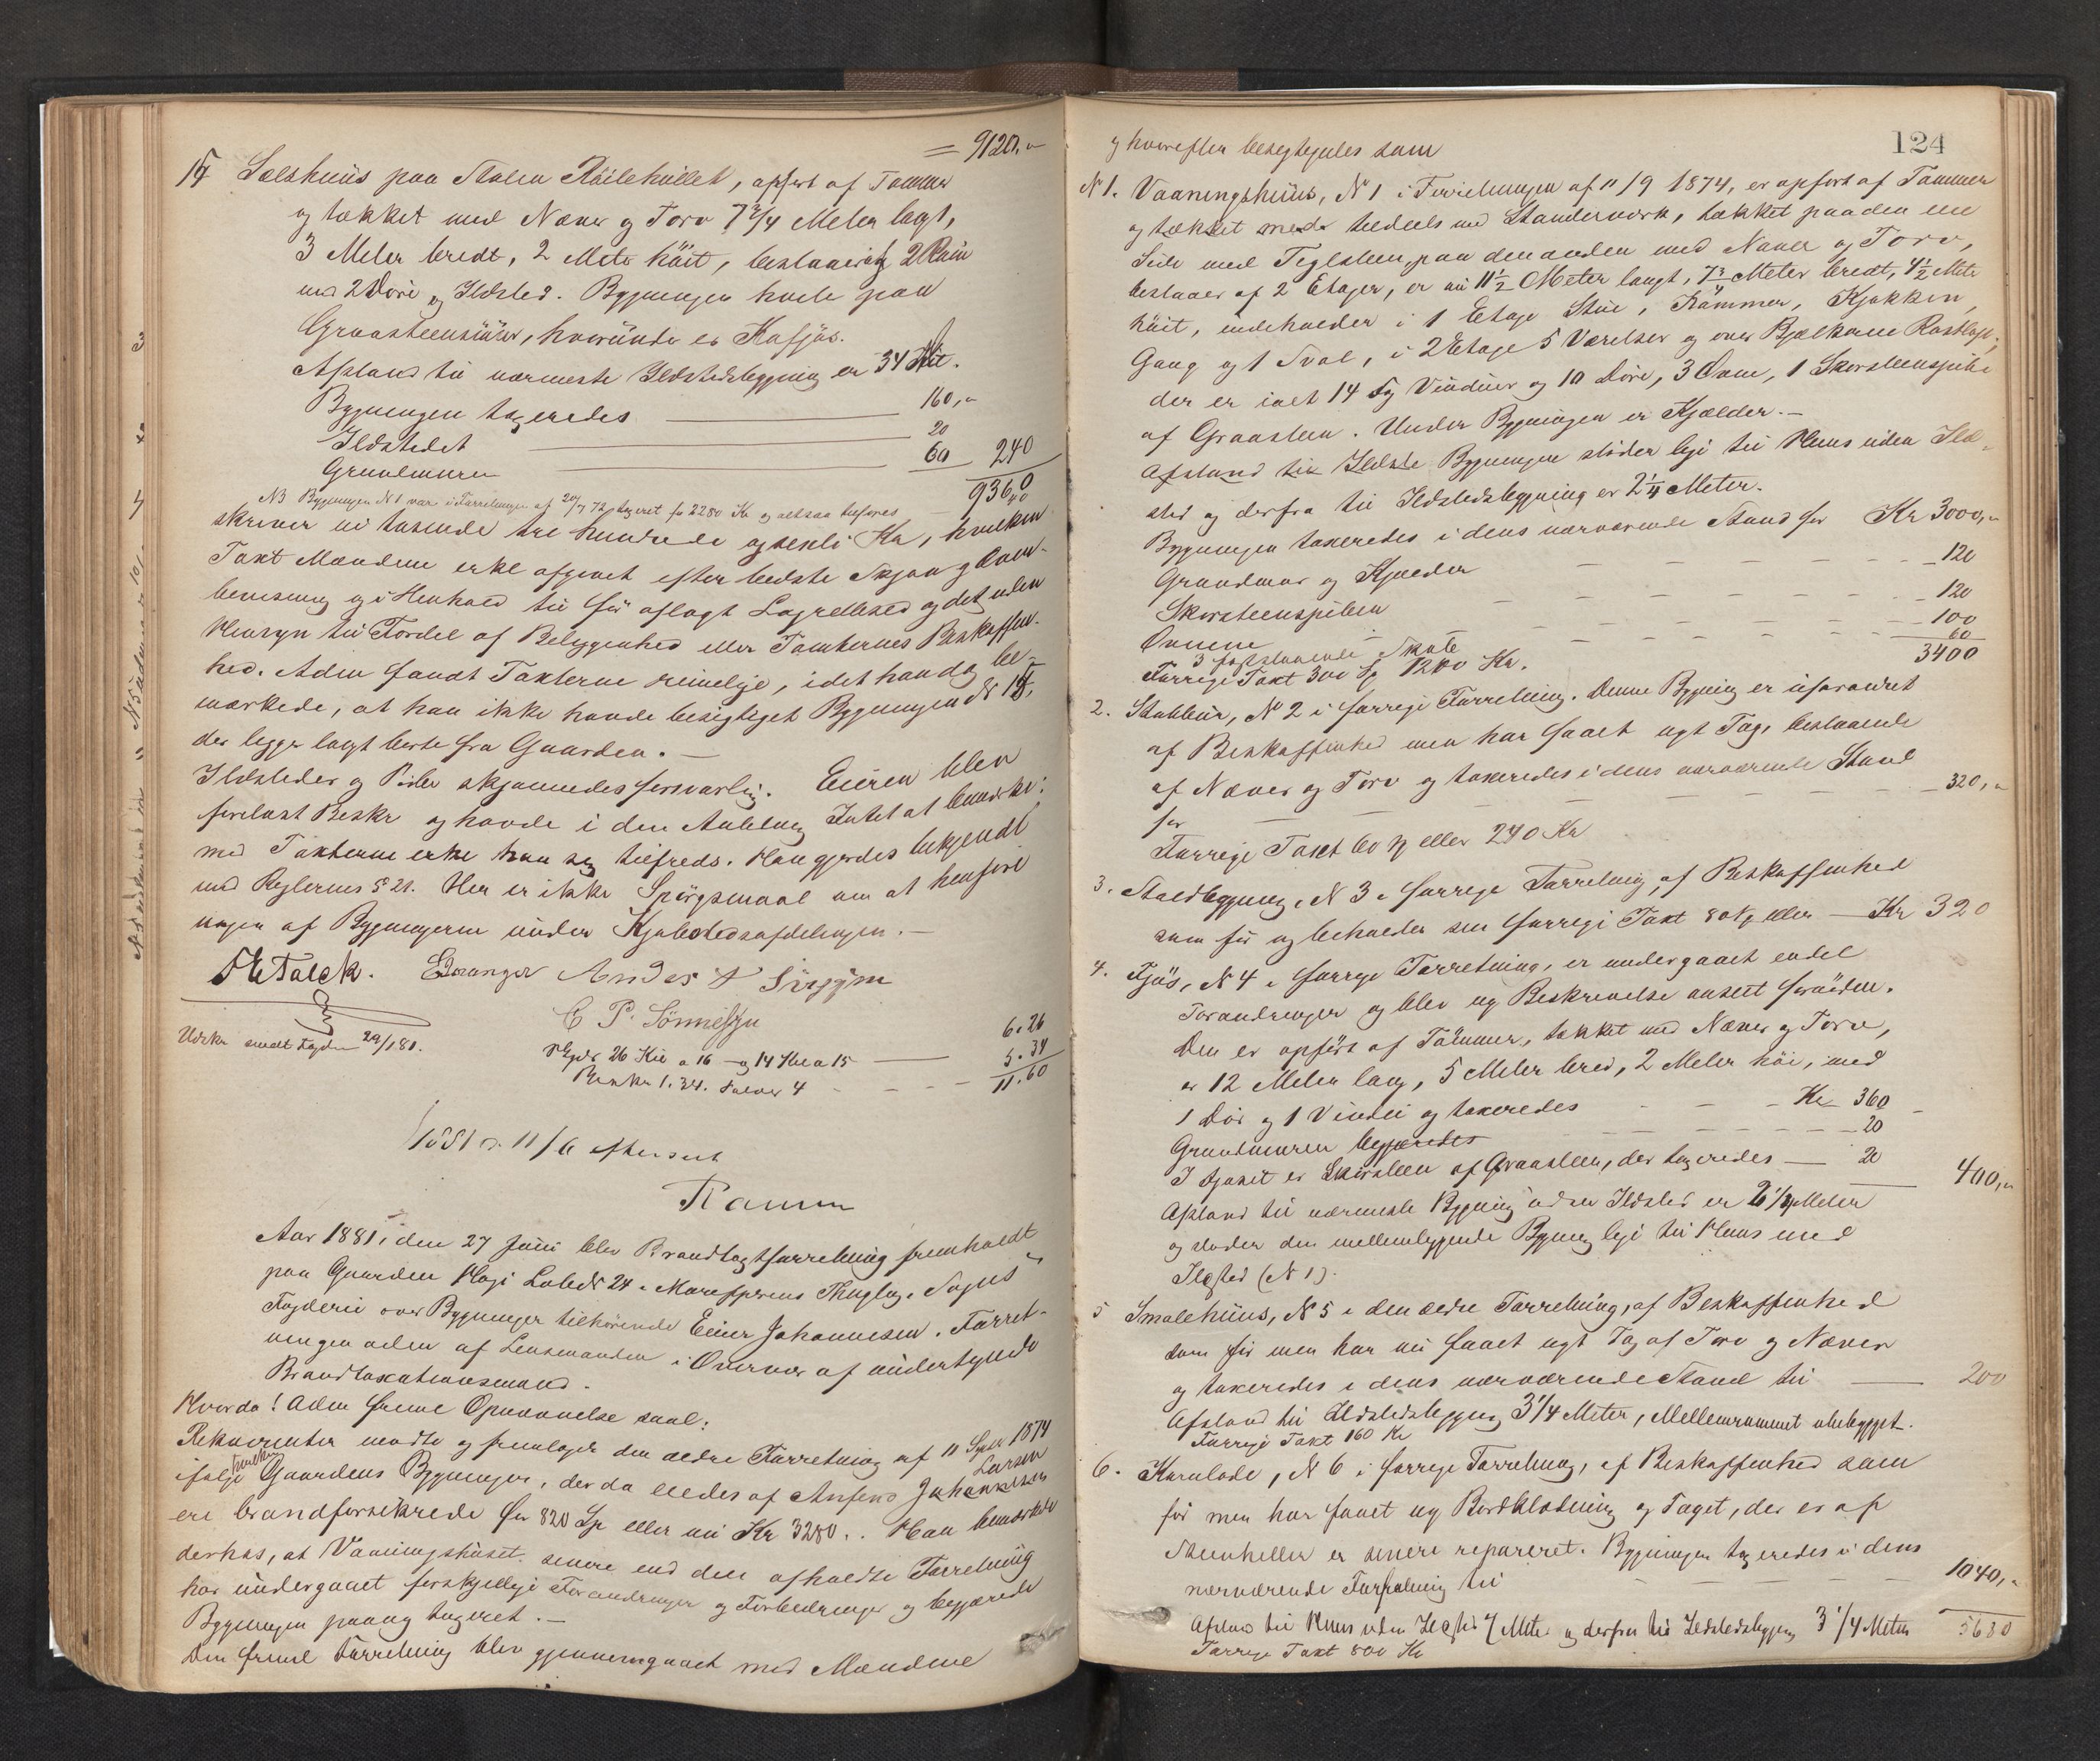 = 9120,"
15 Sælshuus paa Stølen, opført af Tømmer
og tækket med Næver og Torv 7 3/4 Meter langt,
3 Meter bredt, 2 Meter høit, bestaaende af 2 Rum
med 2 Døre og Ildsted. Bygningen hvile paa
Graasteensmuur, hvorunder er Kafjøs.
Afstand til nærmeste Ildstedsbygning er 34 Met.
Bygningen taxeredes 160,"
Ildstedet 20
Grundmuren 60 240
9360
NB Bygningen N 1 var i Forretningen af 20/7 72 taxeret for 2280 Kr og altsaa
skriver ni tusinde tre hundrede og sexti Kr, hvilken
Taxt Mændene erkl afgivet efter bedste Skjøn og Over-
beviisning og i Henhold til før aflagt Lagrettesed og det uden
Hensyn til Fordel af Beliggenhed eller Tomternes Beskaffen-
hed. Adm fandt Taxterne rimelige, idet han dog be-
mærkede, at han ikke havde besigtiget Bygningen N 15,
der ligger langt borte fra Gaarden.
Ildsteder og Piber skjønnedes forsvarlig. Eieren blev
forelæst Beskr og havde i den Anledning Intet at bemærke;
med Taxterne erkl han sig tilfreds. Han gjordes bekjendt
med Reglernes § 21. Her er ikke Spørgsmaal om at henføre
nogen af Bygningerne under Kjøbstedsafdelingen.
Falck. Anders
C P. Sønnesyn
6. 26
26 Kil a 16 og 14 Kil a 15 5. 34
Beskr 1. 34. 4 11. 60
Udskr sendt Fogden 29/1 81.
1881 d. 11/6 efterseet
Ramm
Aar 1881, den 27 Juni blev Brandtaxtforretning fremholdt
paa Gaarden Lobe N 24 i Marefjærens Thinglag, Sogns
Fogderie over Bygninger tilhørende Einer Johannesen. Forret-
ningen adm af Lensmanden i Overvær af undertegnede
Brandtaxationsmænd.
Hvorda! Adm fremlagde Opnævnelse saal:
Rekvirenten mødte og fremlagde den ældre Forretning af 11 Septbr 1874
ifølge hvilken Gaardens Bygninger, der da eiedes af Anfind Johannesen Larsen
ere brandforsikrede for 820 Sp eller nu Kr 3280. Han bemærkede
derhos, at Vaaningshuset senere end den afholdte Forretning
har undergaaet forskjellige Forandringer og Forbedringer og begjærede
Bygningen paany taxeret.
Den fremlagte Forretning blev gjennemgaaet med Mændene
124
og hvorefter besigtigedes som
N 1. Vaaningshuus, N 1 i Forretningen af 11/9 1874, er opført af Tømmer
og tækket med tildeels med Standerværk, tækket paa den ene
Side med Teglsteen, paa den anden med Næver og Torv,
bestaaer af 2 Etager, er nu 11 1/2 Meter langt, 7 3/4 Meter bredt, 4 1/2 Meter
høit, indeholder i 1 Etage Stue, Kammer, Kjøkken,
Gang og 1 Sval, i 2 Etage 5 Værelser og over Bjælkerne Rostloft,
der er ialt 14 Fag Vinduer og 10 Døre, 3 Ovne, 1 Skorsteenspibe
af Graasteen. Under Bygningen er Kjælder.
Afstand til Bygningen støder lige til Huus uden Ild-
sted og derfra til Ildstedsbygning er 2 1/4 Meter.
Bygningen taxeredes i dens nærværende Stand for Kr 3000,"
Grundmur og Kjælder 120
Skorsteenspiben 120
Ovnene 100
3 faststaaende Skabe 60
Forrige Taxt 300 Sp 1200 Kr. 3400
2. Stabbur, N 2 i forrige Forretning. Denne Bygning er uforandret
af Beskaffenhed men har faaet nyt Tag, bestaaende
af Næver og Torv og taxeredes i dens nærværende Stand
for 320,"
Forrige Taxt 60 Sp eller 240 Kr
3. Staldbygning, N 3 i forrige Forretning, af Beskaffenhed
som før og beholder sin forrige Taxt 80 Sp eller Kr 320
4. Fjøs, N 4 i forrige Forretning, er undergaaet endel
Forandringer og blev ny Beskrivelse anseet fornøden.
Den er opført af Tømmer, tækket med Næver og Torv,
er 12 Meter lang, 5 Meter bred, 2 Meter høi, med
1 Dør og 1 Vindue og taxeredes Kr 360
Grundmuren begjæredes 20
I Fjøset er Skorsteen af Graasteen, der taxeredes 20 400,"
Afstand til nærmeste Bygning uden Ildsted er 2 1/2 Meter
og støder den mellemliggende Bygning lige til Huus med
Ildsted (N 1).
5 Smalehuus, N 5 i den ældre Forretning, af Beskaffenhed
som før men har nu faaet nyt Tag af Torv og Næver
og taxeredes i dens nærværende Stand til 200
Afstand til Ildstedsbygning 3 1/4 Meter, Mellemrummet ubebygget.
Forrige Taxt 160 Kr
6. Kornlade, N 6 i forrige Forretning, af Beskaffenhed som
før men har faaet ny Bordklædning og Taget, der er af
Steenheller er senere repareret. Bygningen taxeredes i dens
nærværende Forfatning til 1040,"
Afstand til Huus uden Ildsted 7 Meter og derfra til Ildstedsbygning 3 1/4 Meter 5680
Forrige Taxt 800 Kr